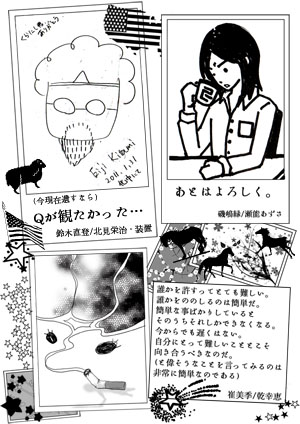 ありがとう
Eiji Kitami
2011.1.11
(今現在遺すなら)
Qが観たかった…
鈴木直登/北見栄治・装置
あとはよろしく。
磯嶋縁/瀬能あずさ
誰かを許すってとても難しい。
誰かをののしるのは簡単だ。
簡単な事ばかりしていると
そのうちそれしかできなくなる。
今からでも遅くはない。
自分にとって難しいことこそ
向き合うべきなのだ。
(と偉そうなことを言ってみるのは
非常に簡単なのである)
崔美季/乾幸恵